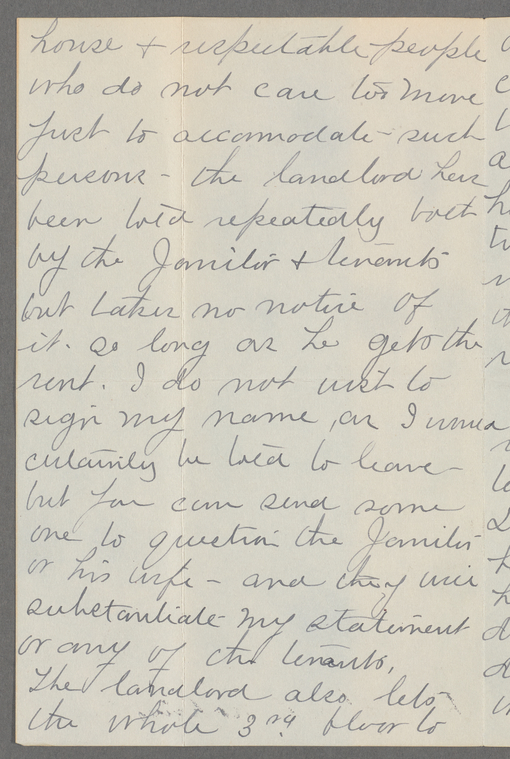 house & respectable people
who do not care to move
just to accomodate such
persons - the landlord has
been told repeatedly both
by the Janitor & tenants
but takes no notice of
it. so long as he gets the
rent. I do not wish to
sign my name, as I would
certainly be told to leave -
but you can send some
one to question the Janitor
or his wife - and they will
substantiate my statement
or any of the tenants,
The landlord also lets
the whole 3rd floor to